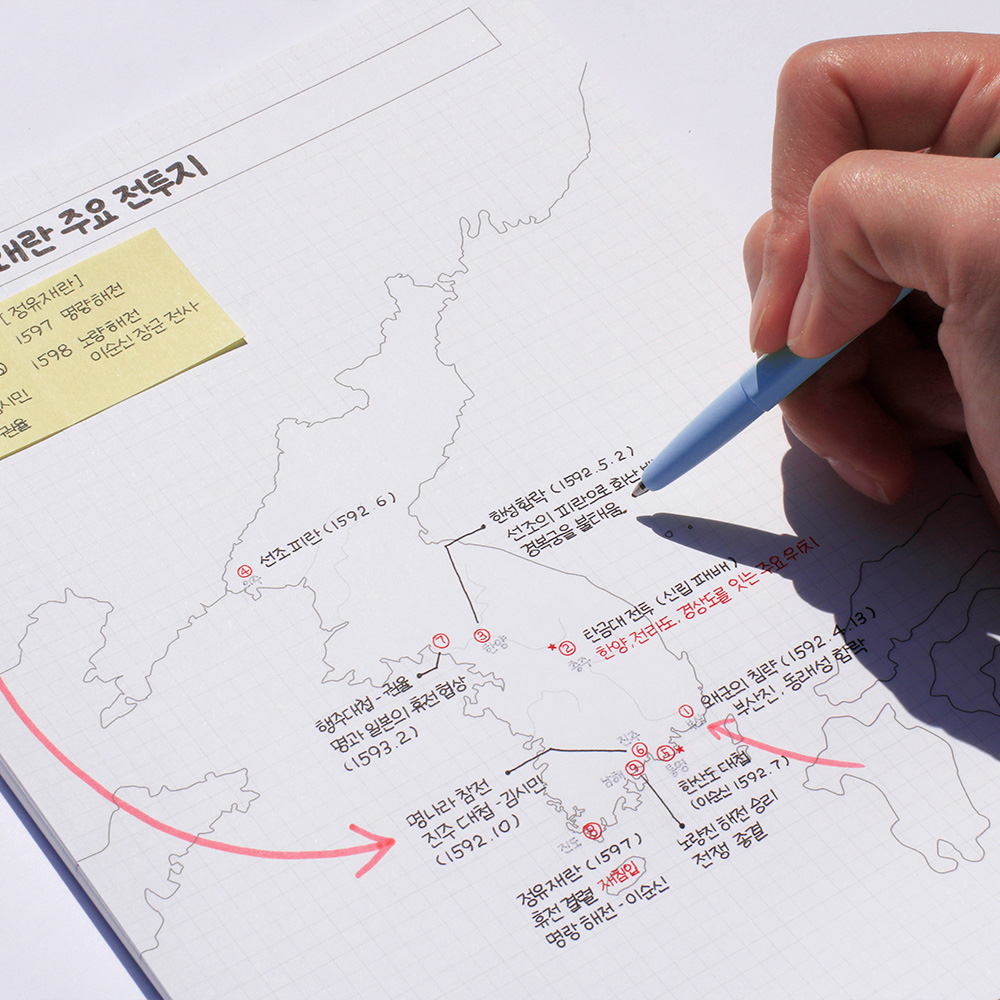 왜란 주요 전투지
[정유재란]
1597 명량해전
1598 노량해전
이순신 장군 전사
김시민
권율
한성함락 (1592.5.2)
선조의 피란으로 화난
경복궁을 불태움.
④ 선조피란 (1592.6)
의주
⑦
③
한양
★②
충주
탄금대 전투 (신립 패배)
한양, 전라도, 경상도를 잇는 주요 위치
행주대첩 - 권율
명과 일본의 휴전 협상
(1593.2)
① 왜군의 침략 (1592.4.13)
부산
부산진, 동래성 함락
진주
⑥
⑤★
통영
남해
⑨
한산도 대첩
(이순신 1592.7)
명나라 참전
진주 대첩 - 김시민
(1592.10)
노량진 해전 승리
전쟁 종결
⑧
진도
정유재란 (1597)
휴전 결렬 재침입
명랑 해전 - 이순신